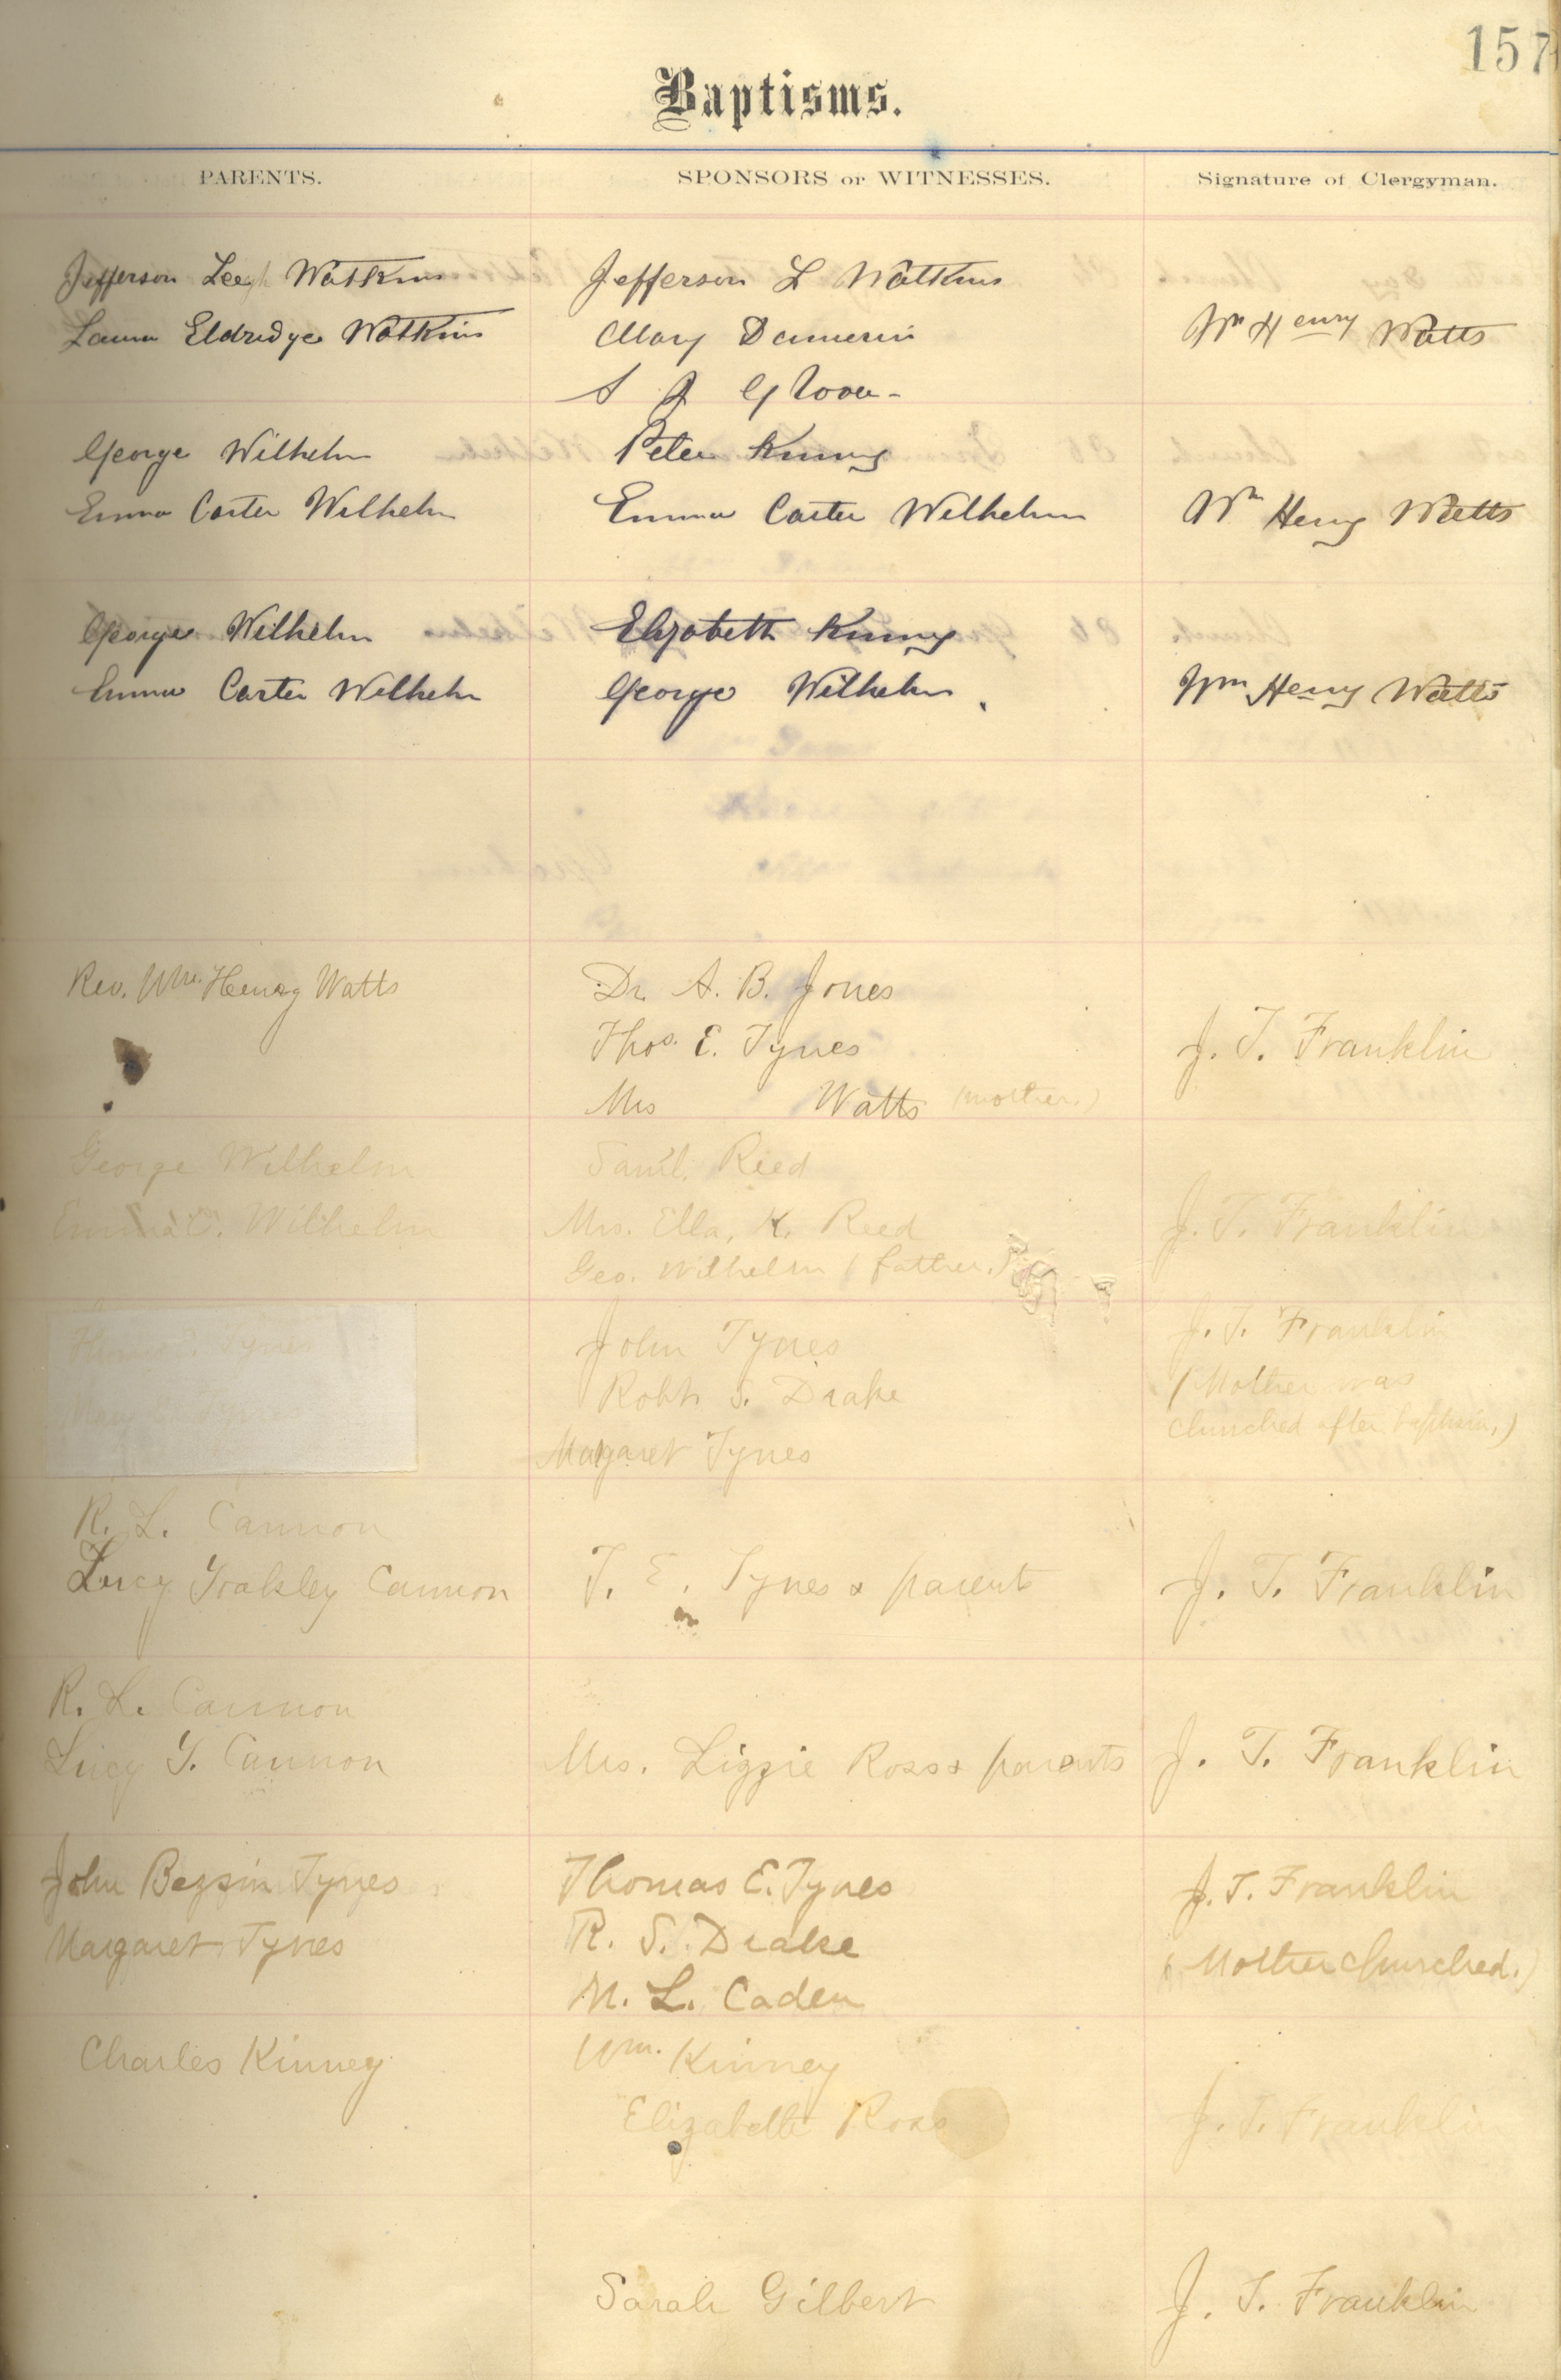 157
Baptisms.
PARENTS.
SPONSORS or WITNESSES.
Signature of Clergyman.
Jefferson Leigh Watkins
Laura Eldredge Watkins
Jefferson L Watkins
Mary Dameron
S J Glover
Wm Henry Watts
George Wilhelm
Emma Carter Wilhelm
Peter Kinney
Emma Carter Wilhelm
Wm Henry Watts
George Wilhelm
Emma Carter Wilhelm
Elizabeth Kinney
George Wilhelm
Wm Henry Watts
Rev. Wm. Henry Watts
Dr. A. B. Jones
Thos. E. Tynes
Mrs Watts (mother.)
J. T. Franklin
George Wilhelm
Emma C. Wilhelm
Saml. Reed
Mrs. Ella, K. Reed
Geo. Wilhelm (father.)
J. T. Franklin
Thomas Tynes
Mary
John Tynes
Robt. S. Drake
Margaret Tynes
J. T. Franklin
(Mother was
churched after baptism,)
R. L. Cannon
Lucy Yeakley Cannon
T. E. Tynes & parents
J. T. Franklin
R. L. Cannon
Lucy Y. Cannon
Mrs. Lizzie Ross & parents
J. T. Franklin
John Tynes
Margaret Tynes
Thomas E. Tynes
R. S. Drake
M. L. Caden
J. T. Franklin
(Mother churched.)
Charles Kinney
Wm. Kinney
Elizabeth Ross
J. T. Franklin
Sarah Gilbert
J. T. Franklin